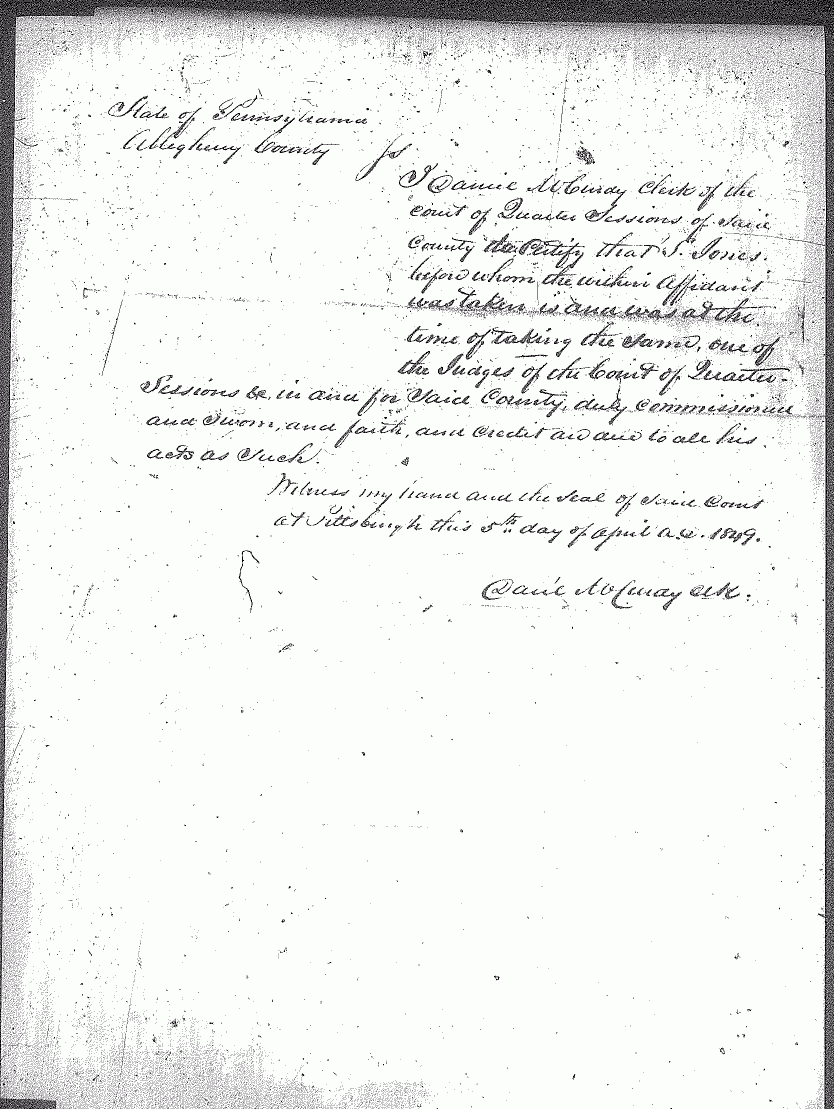 State of Pennsylvania
Allegheny County ss
I Daniel McCurdy Clerk of the
court of Quarter Sessions of said
County do Certify that S. Jones
before whom the within Affidavit
was taken is and was at the
time of taking the same, one of
the Judges of the Court of Quarter
Sessions &c, in and for said County, duly commissioned
and sworn, and faith, and credit are due to all his
acts as such.
Witness my hand and the seal of said Court
at Pittsburgh this 5th day of April A.D. 1849.
Daniel McCurdy Clk.